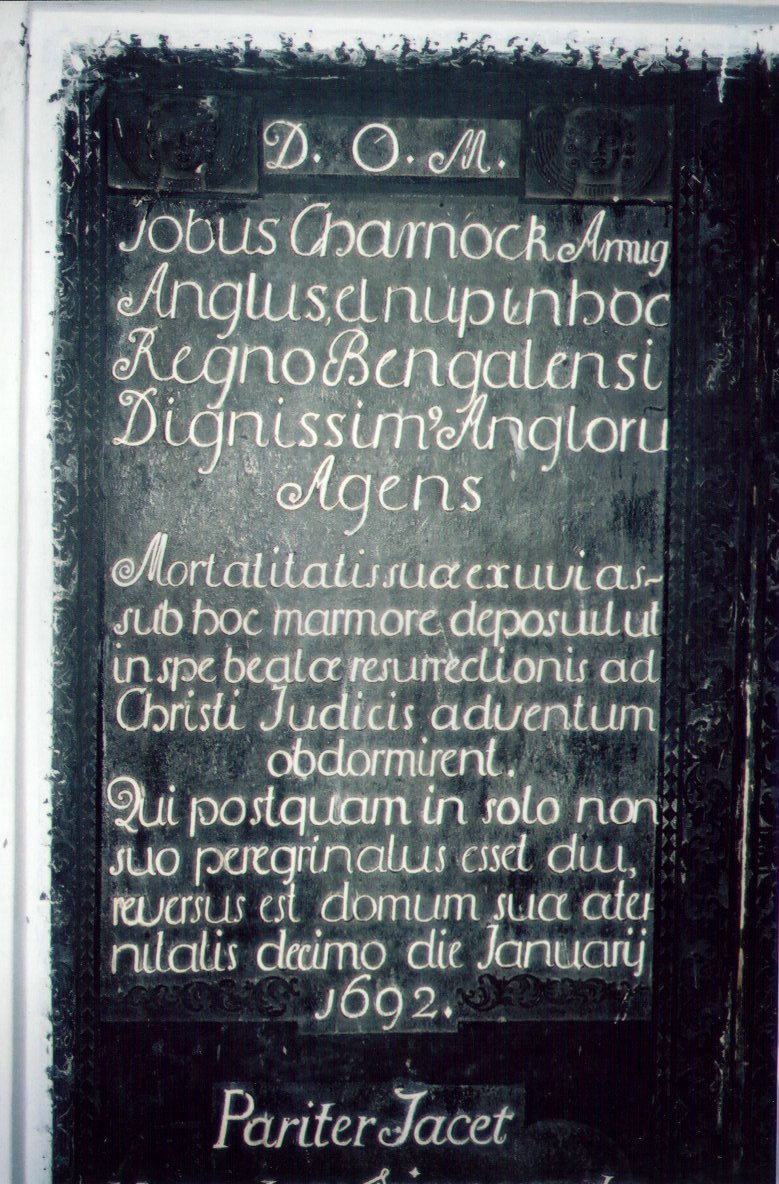 D. O. M.
Jobus Charnock Armigʳ
Anglus, et nup in hoc
Regno Bengalensi
Dignissimꝰ Angloru
Agens
Mortalitatis suæ exuvias
sub hoc marmore deposuit ut
in spe beatæ resurrectionis ad
Christi Judicis adventum
obdormirent.
Qui postquam in solo non
suo peregrinatus esset diu,
reversus est domum suæ æter
nitatis decimo die Januarij
1692.
Pariter Jacet